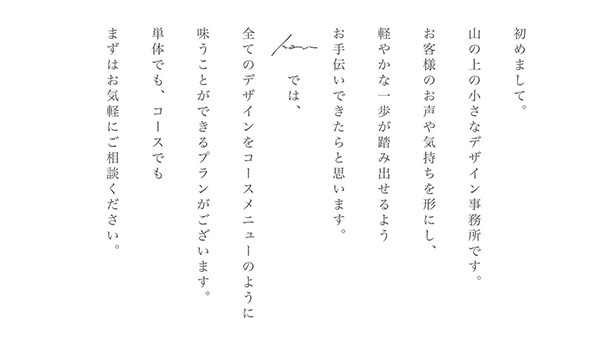 初めまして。
山の上の小さなデザイン事務所です。
お客様のお声や気持ちを形にし、
軽やかな一歩が踏み出せるよう
お手伝いできたらと思います。
では、
全てのデザインをコースメニューのように
味うことができるプランがございます。
単体でも、コースでも
まずはお気軽にご相談ください。